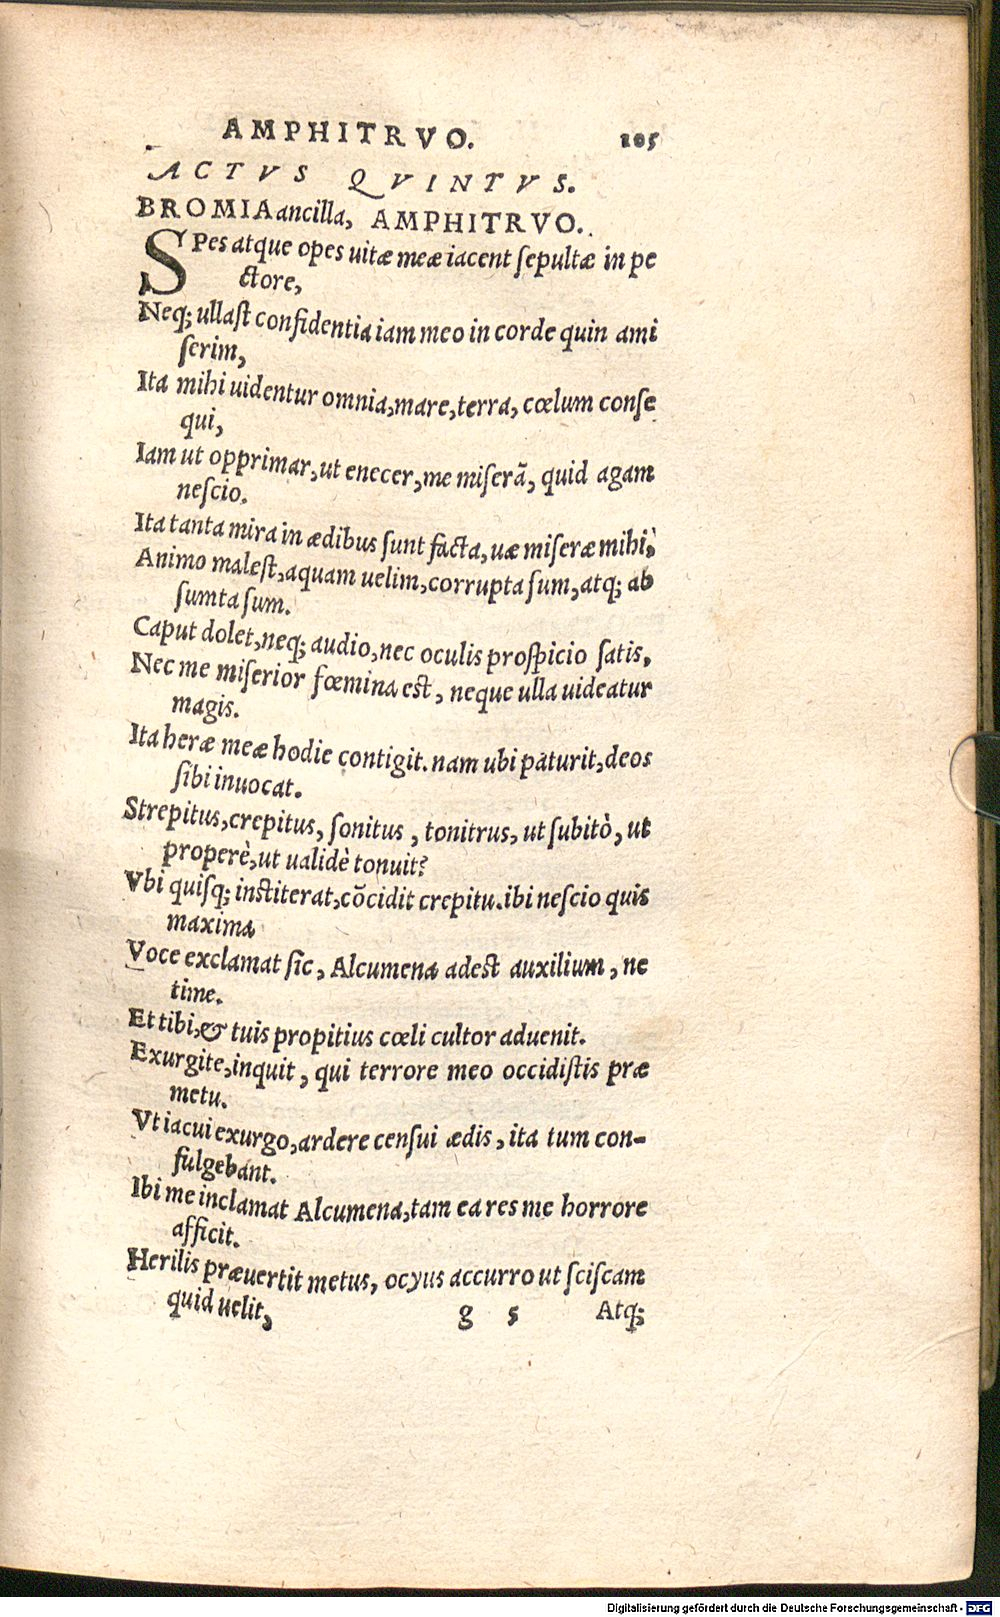 AMPHITRVO. 105
ACTVS QVINTVS.
BROMIA ancilla, AMPHITRVO.
SPes atque opes uitæ meæ iacent ſepultæ in pe
ctore,
Neq; ullaſt confidentia iam meo in corde quin ami
ſerim,
Ita mihi uidentur omnia, mare, terra, cœlum conſe
qui,
Iam ut opprimar, ut enecer, me miſerã, quid agam
neſcio.
Ita tanta mira in ædibus ſunt facta, uæ miſeræ mihi,
Animo maleſt, aquam uelim, corrupta ſum, atq; ab
ſumta ſum.
Caput dolet, neq; audio, nec oculis proſpicio ſatis,
Nec me miſerior fœmina eſt, neque ulla uideatur
magis.
Ita heræ meæ hodie contigit. nam ubi paturit, deos
ſibi inuocat.
Strepitus, crepitus, ſonitus, tonitrus, ut ſubitò, ut
properè, ut ualidè tonuit?
Vbi quiſq; inſtiterat, cõcidit crepitu. ibi neſcio quis
maxima
Voce exclamat ſic, Alcumena adeſt auxilium, ne
time.
Et tibi, & tuis propitius cœli cultor aduenit.
Exurgite, inquit, qui terrore meo occidiſtis præ
metu.
Vt iacui exurgo, ardere cenſui ædis, ita tum con-
fulgebant.
Ibi me inclamat Alcumena, tam ea res me horrore
afficit.
Herilis præuertit metus, ocyus accurro ut ſciſcam
quid uelit, g 5 Atq;
Digitalisierung gefördert durch die Deutsche Forschungsgemeinschaft - DFG